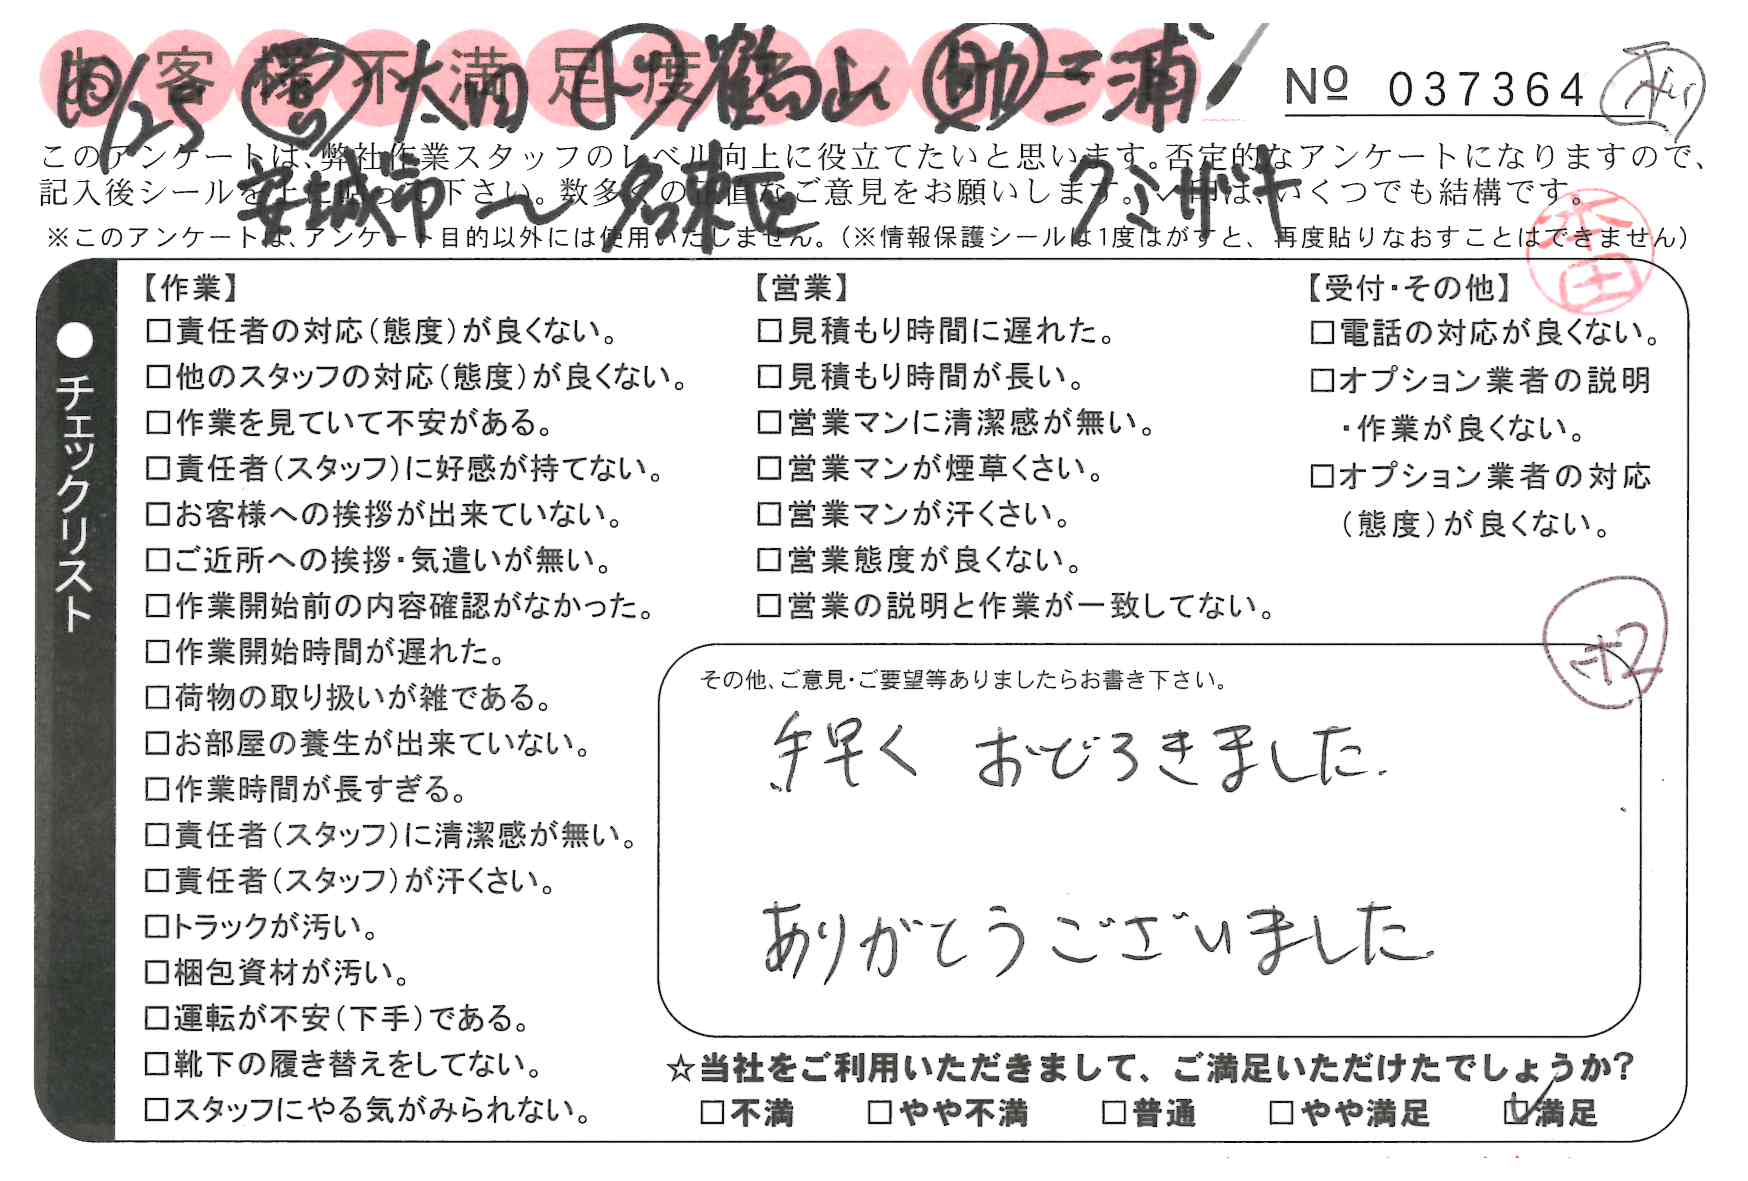 お客様不満足度アンケート
10/25 営 太田 ト 鶴山 助 三浦
安城市〜名東区 クミザキ
No 037364
このアンケートは、弊社作業スタッフのレベル向上に役立てたいと思います。否定的なアンケートになりますので、
記入後シールを上に貼って下さい。数多くの正直なご意見をお願いします。✓印は、いくつでも結構です。
※このアンケートは、アンケート目的以外には使用いたしません。（※情報保護シールは1度はがすと、再度貼りなおすことはできません）
●チェックリスト
【作業】
□責任者の対応（態度）が良くない。
□他のスタッフの対応（態度）が良くない。
□作業を見ていて不安がある。
□責任者（スタッフ）に好感が持てない。
□お客様への挨拶が出来ていない。
□ご近所への挨拶・気遣いが無い。
□作業開始前の内容確認がなかった。
□作業開始時間が遅れた。
□荷物の取り扱いが雑である。
□お部屋の養生が出来ていない。
□作業時間が長すぎる。
□責任者（スタッフ）に清潔感が無い。
□責任者（スタッフ）が汗くさい。
□トラックが汚い。
□梱包資材が汚い。
□運転が不安（下手）である。
□靴下の履き替えをしてない。
□スタッフにやる気がみられない。
【営業】
□見積もり時間に遅れた。
□見積もり時間が長い。
□営業マンに清潔感が無い。
□営業マンが煙草くさい。
□営業マンが汗くさい。
□営業態度が良くない。
□営業の説明と作業が一致してない。
【受付・その他】
□電話の対応が良くない。
□オプション業者の説明
・作業が良くない。
□オプション業者の対応
（態度）が良くない。
その他、ご意見・ご要望等ありましたらお書き下さい。
手早く おどろきました.
ありがとうございました.
☆当社をご利用いただきまして、ご満足いただけたでしょうか?
□不満 □やや不満 □普通 □やや満足 ☑満足